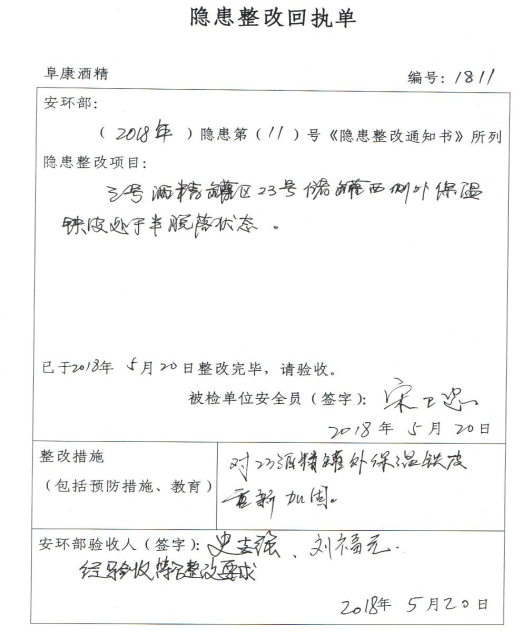 隐患整改回执单
阜康酒精 编号：1811
安环部：
（2018年）隐患第（11）号《隐患整改通知书》所列
隐患整改项目：
三号酒精罐区23号储罐西侧外保温
铁皮处于半脱落状态。
已于2018年 5月20日整改完毕，请验收。
被检单位安全员（签字）：宋卫忠
2018年 5月20日
整改措施
（包括预防措施、教育）
对23酒精罐外保温铁皮
重新加固。
安环部验收人（签字）：史志强、刘福元.
经验收符合整改要求
2018年 5月20日